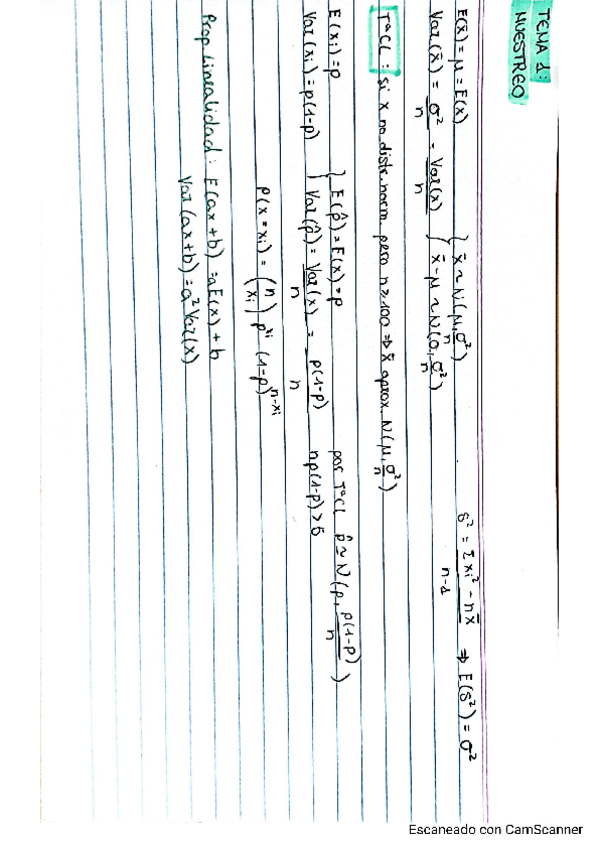 TEMA 1:
MUESTREO
E(x̄) = μ = E(x)
Var(x̄) = σ²/n = Var(x)/n
{ x̄ ~ N(μ, σ²/n)
{ x̄-μ ~ N(0, σ²/n)
s² = Σxi² - nx̄ / n-1 ⇒ E(s²) = σ²
TªCL: si x no distr. norm pero n≥100 ⇒ x̄ aprox. N(μ, σ²/n)
E(xi) = p
Var(xi) = p(1-p)
{ E(p̂) = E(x) = p
{ Var(p̂) = Var(x)/n = p(1-p)/n
por TªCL p̂ ≃ N(p, p(1-p)/n)
np(1-p) > 5
P(x = xi) = (n xi) p^xi (1-p)^n-xi
Prop Linealidad: E(ax+b) = aE(x)+b
Var(ax+b) = a²Var(x)
Escaneado con CamScanner